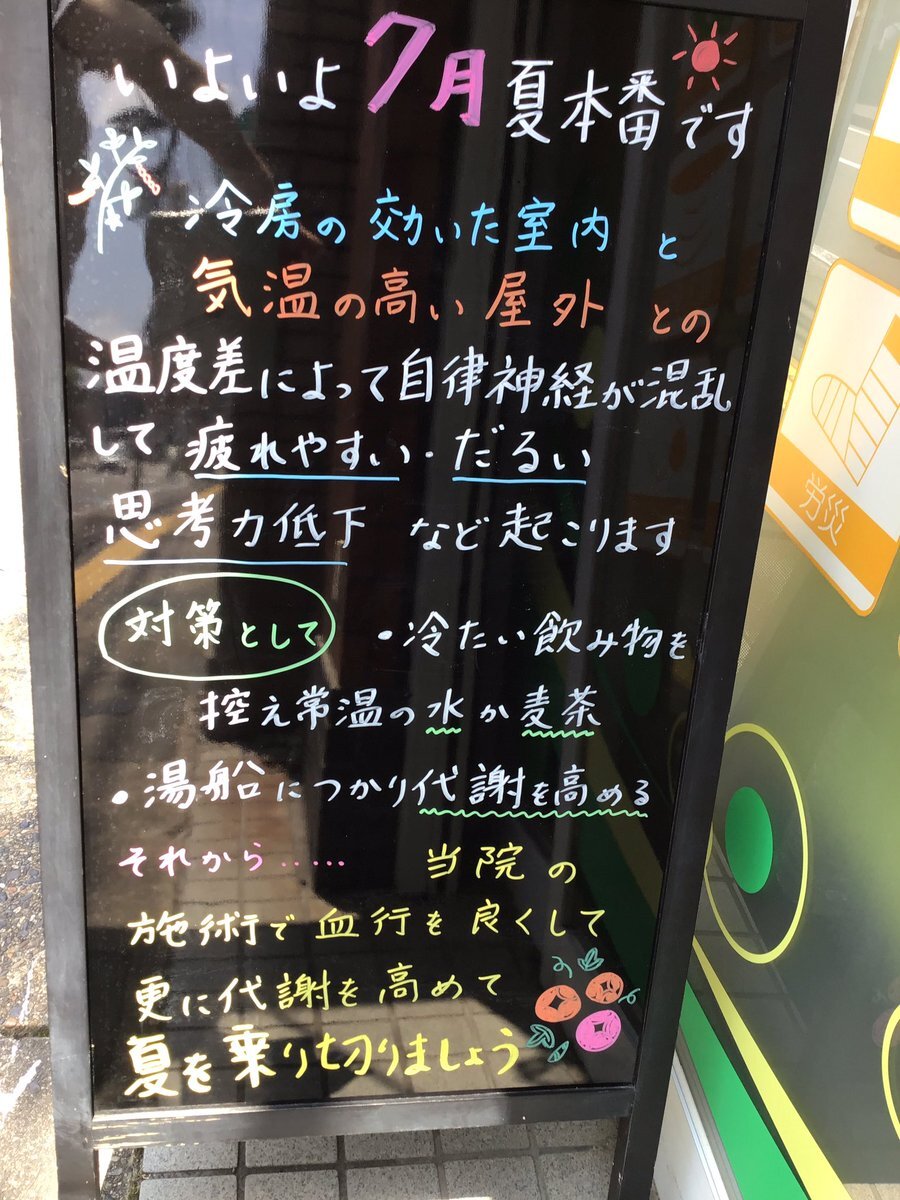 いよいよ7月夏本番です
冷房の効いた室内と
気温の高い屋外との
温度差によって自律神経が混乱
して疲れやすい・だるい
思考力低下 など起こります
対策として ・冷たい飲み物を
控え常温の水か麦茶
・湯船につかり代謝を高める
それから…… 当院の
施術で血行を良くして
更に代謝を高めて
夏を乗り切りましょう
労災